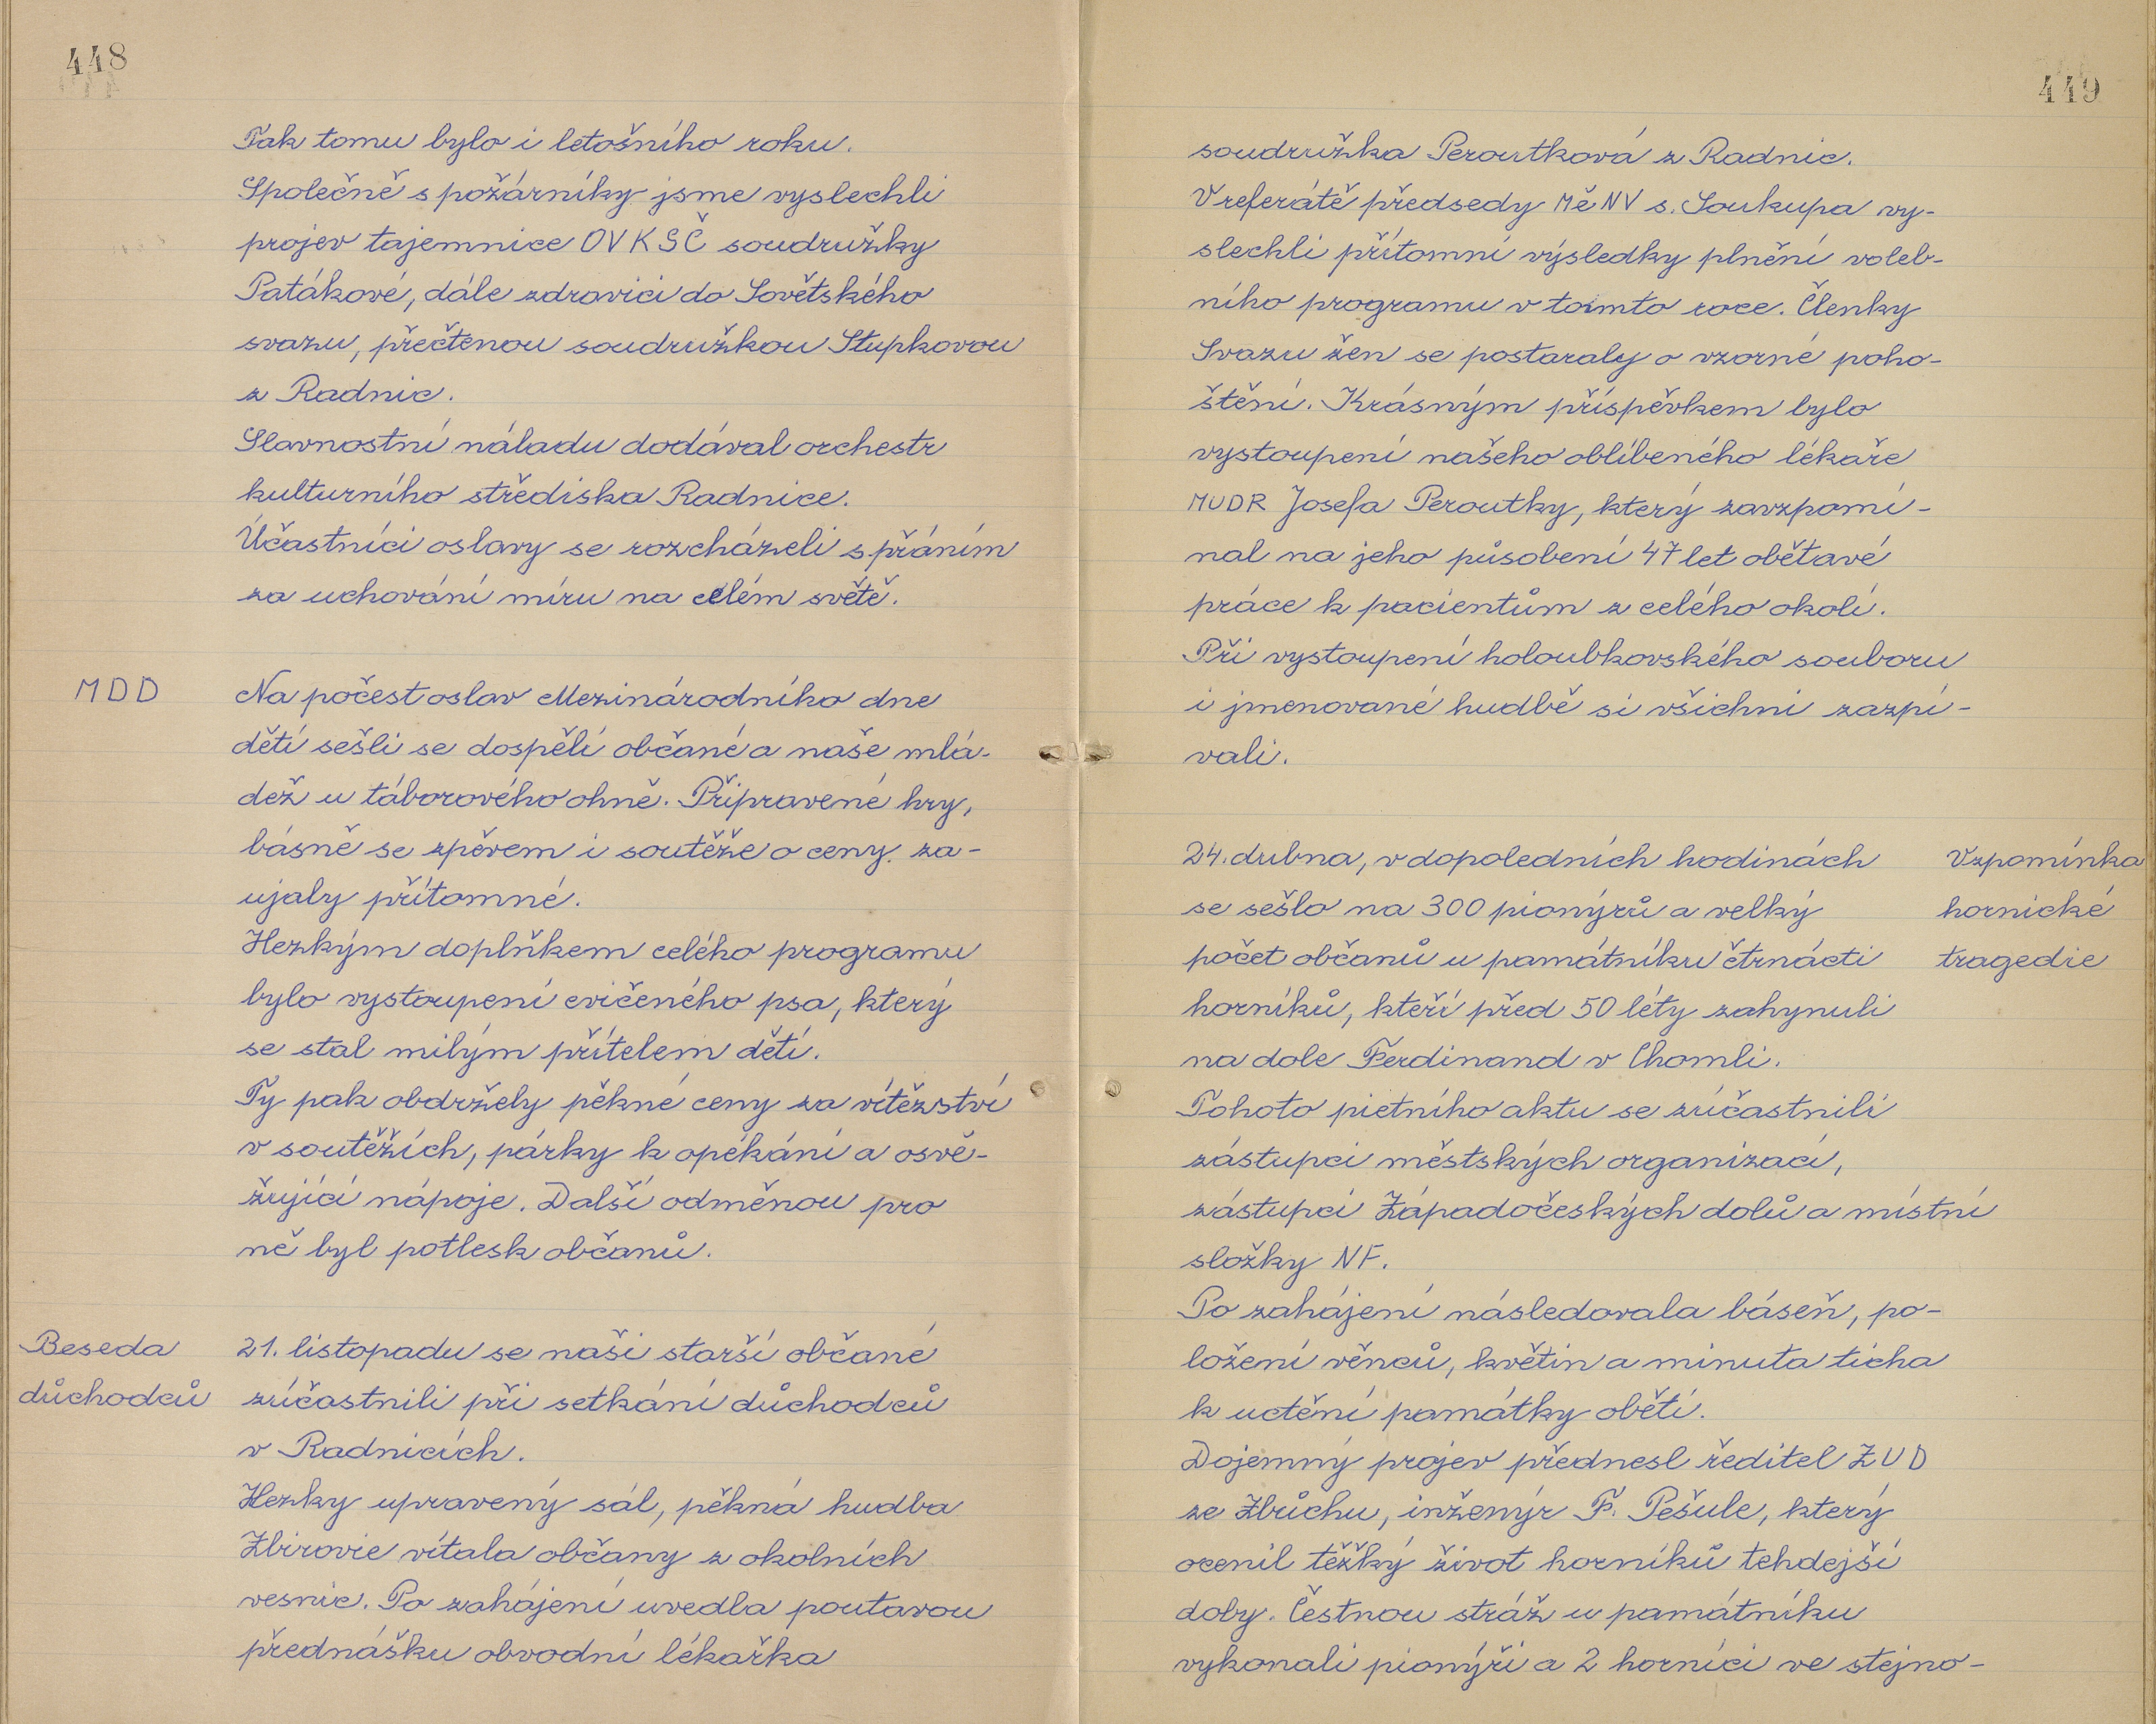 448
Tak tomu bylo i letošního roku.
Společně s požárníky jsme vyslechli
projev tajemnice OV KSČ soudružky
Patákové, dále zdravici do Sovětského
svazu, přečtenou soudružkou Stupkovou
z Radnic.
Slavnostní náladu dodával orchestr
kulturního střediska Radnice.
Účastníci oslavy se rozcházeli s přáním
za uchování míru na celém světě.
MDD
Na počest oslav Mezinárodního dne
dětí sešli se dospělí občané a naše mlá-
dež u táborového ohně. Připravené hry,
básně se zpěvem i soutěže o ceny za-
ujaly přítomné.
Hezkým doplňkem celého programu
bylo vystoupení cvičeného psa, který
se stal milým přítelem dětí.
Ty pak obdržely pěkné ceny za vítězství
v soutěžích, párky k opékání a osvě-
žující nápoje. Další odměnou pro
ně byl potlesk občanů.
Beseda
důchodců
21. listopadu se naši starší občané
zúčastnili při setkání důchodců
v Radnicích.
Hezky upravený sál, pěkná hudba
Zbirovie vítala občany z okolních
vesnic. Po zahájení uvedla poutavou
přednášku obvodní lékařka
449
soudružka Peroutková z Radnic.
V referátě předsedy MěNV s. Soukupa vy-
slechli přítomní výsledky plnění voleb-
ního programu v tomto roce. Členky
Svazu žen se postaraly o vzorné poho-
štění. Krásným příspěvkem bylo
vystoupení našeho oblíbeného lékaře
MUDR Josefa Peroutky, který zavzpomí-
nal na jeho působení 47 let obětavé
práce k pacientům z celého okolí.
Při vystoupení holoubkovského souboru
i jmenované hudbě si všichni zazpí-
vali.
24. dubna, v dopoledních hodinách
se sešlo na 300 pionýrů a velký
počet občanů u památníku čtrnácti
horníků, kteří před 50 léty zahynuli
na dole Ferdinand v Chomli.
Vzpomínka
hornické
tragedie
Tohoto pietního aktu se zúčastnili
zástupci městských organizací,
zástupci Západočeských dolů a místní
složky NF.
Po zahájení následovala báseň, po-
ložení věnců, květin a minuta ticha
k uctění památky obětí.
Dojemný projev přednesl ředitel ZUD
ze Zbůchu, inženýr F. Pešule, který
ocenil těžký život horníků tehdejší
doby. Čestnou stráž u památníku
vykonali pionýři a 2 horníci ve stejno-